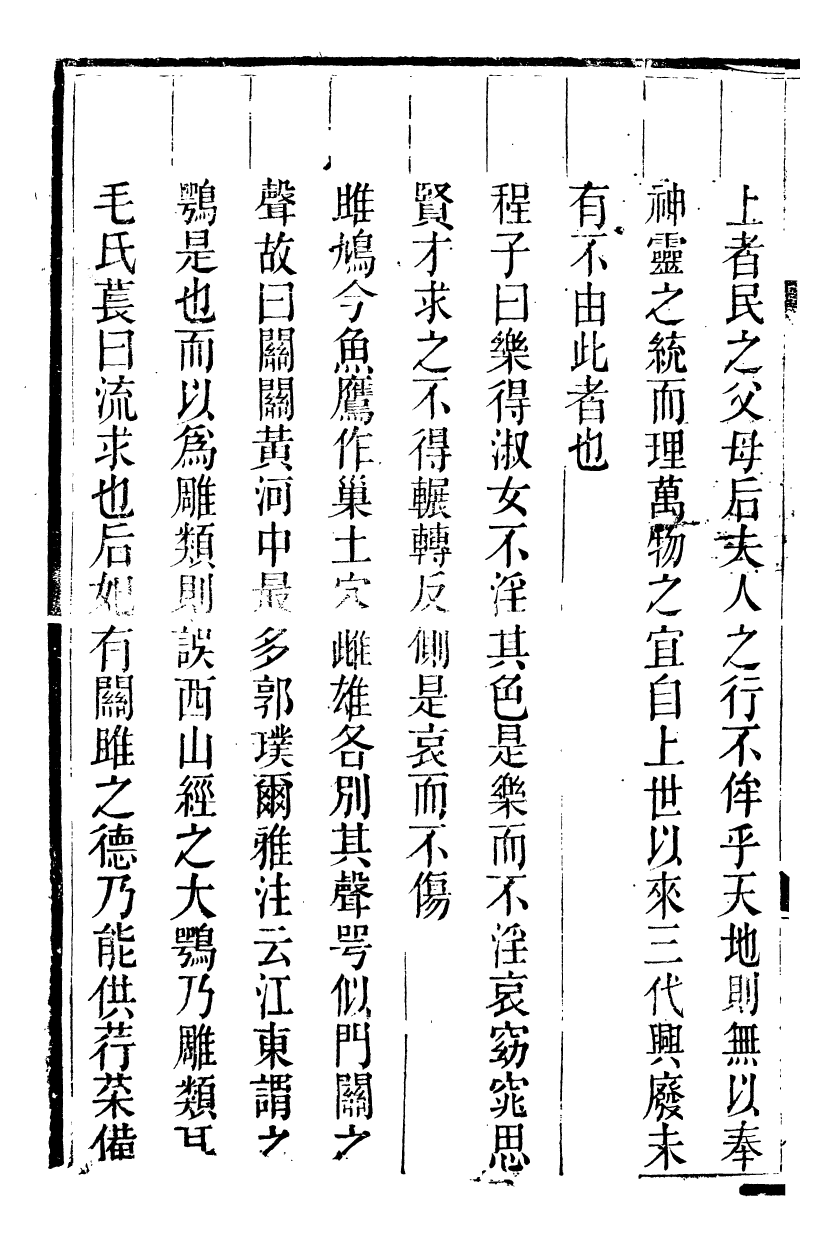 上者民之父母后夫人之行不侔乎天地則無以奉
神靈之統而理萬物之宜自上世以來三代興廢未
有不由此者也
程子曰樂得淑女不淫其色是樂而不淫哀窈窕思
賢才求之不得輾轉反側是哀而不傷
雎鳩今魚鷹作巢土穴雌雄各別其聲咢似門關之
聲故曰關關黃河中最多郭璞爾雅注云江東謂之
鶚是也而以爲雕類則誤西山經之大鶚乃雕類耳
毛氏萇曰流求也后妃有關雎之德乃能供荇菜備